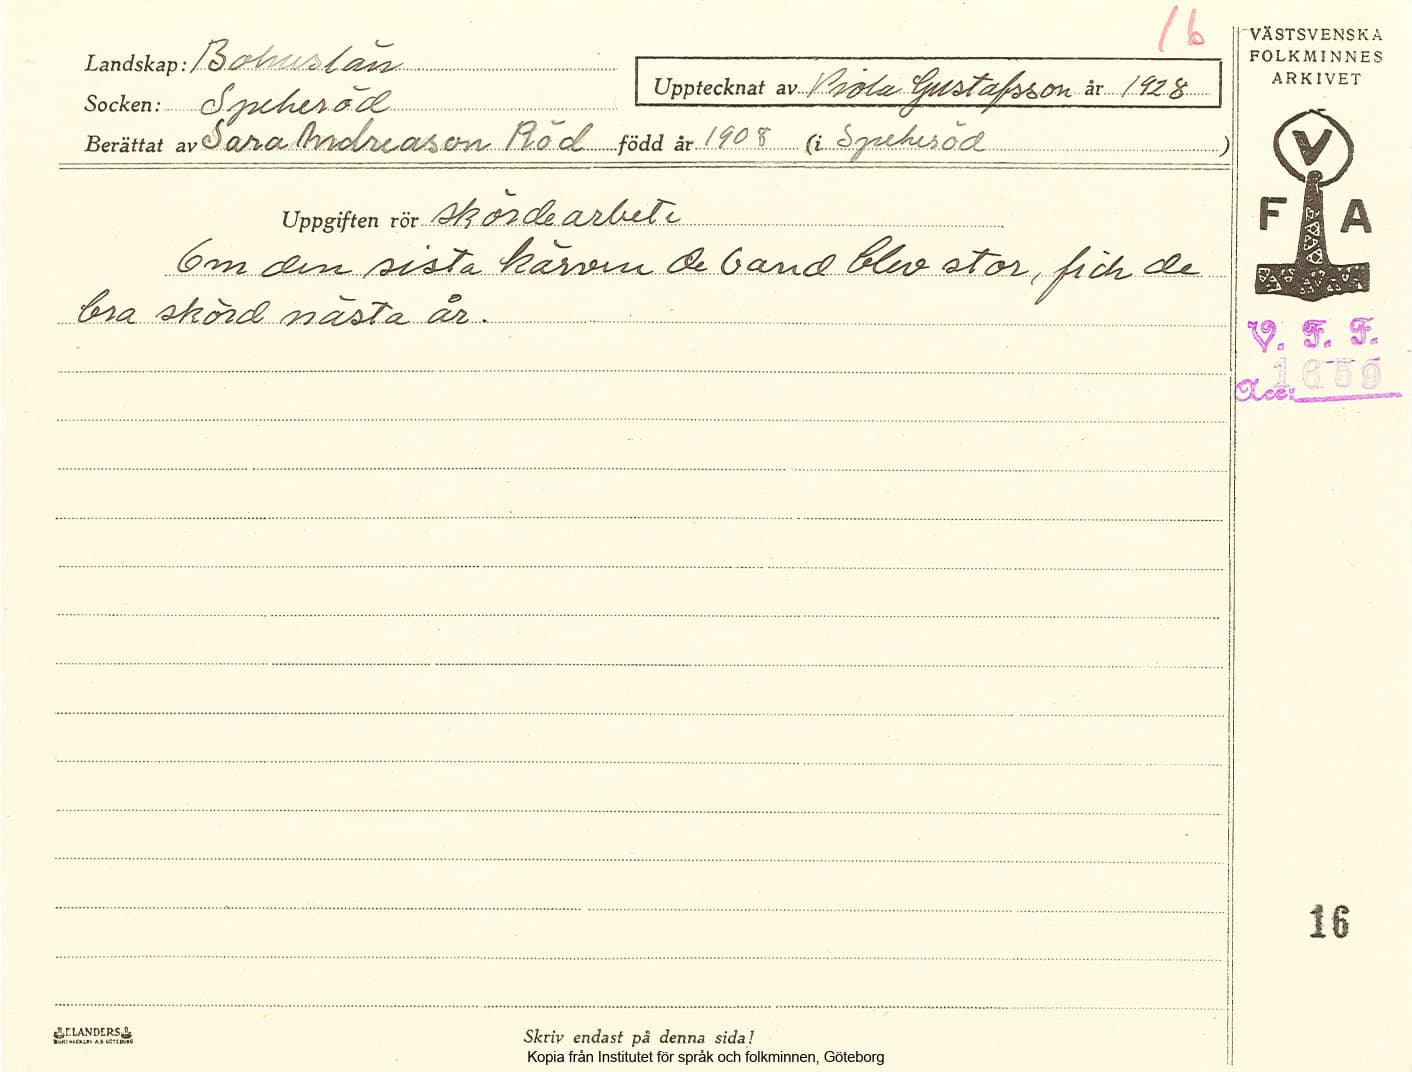 16
VÄSTSVENSKA
FOLKMINNES
ARKIVET
Landskap: Bohuslän
Upptecknat av Viola Gustafsson år 1928
Socken: Spekeröd
Berättat av Sara Andreason Röd född år 1908 (i Spekeröd )
V
F A
Uppgiften rör skördearbete
Om den sista kärven de band blev stor, fick de
bra skörd nästa år.
V. F. F.
Acc: 1659
16
ELANDERS
BOKTRYCKERI A.B. GÖTEBORG
Skriv endast på denna sida!
Kopia från Institutet för språk och folkminnen, Göteborg